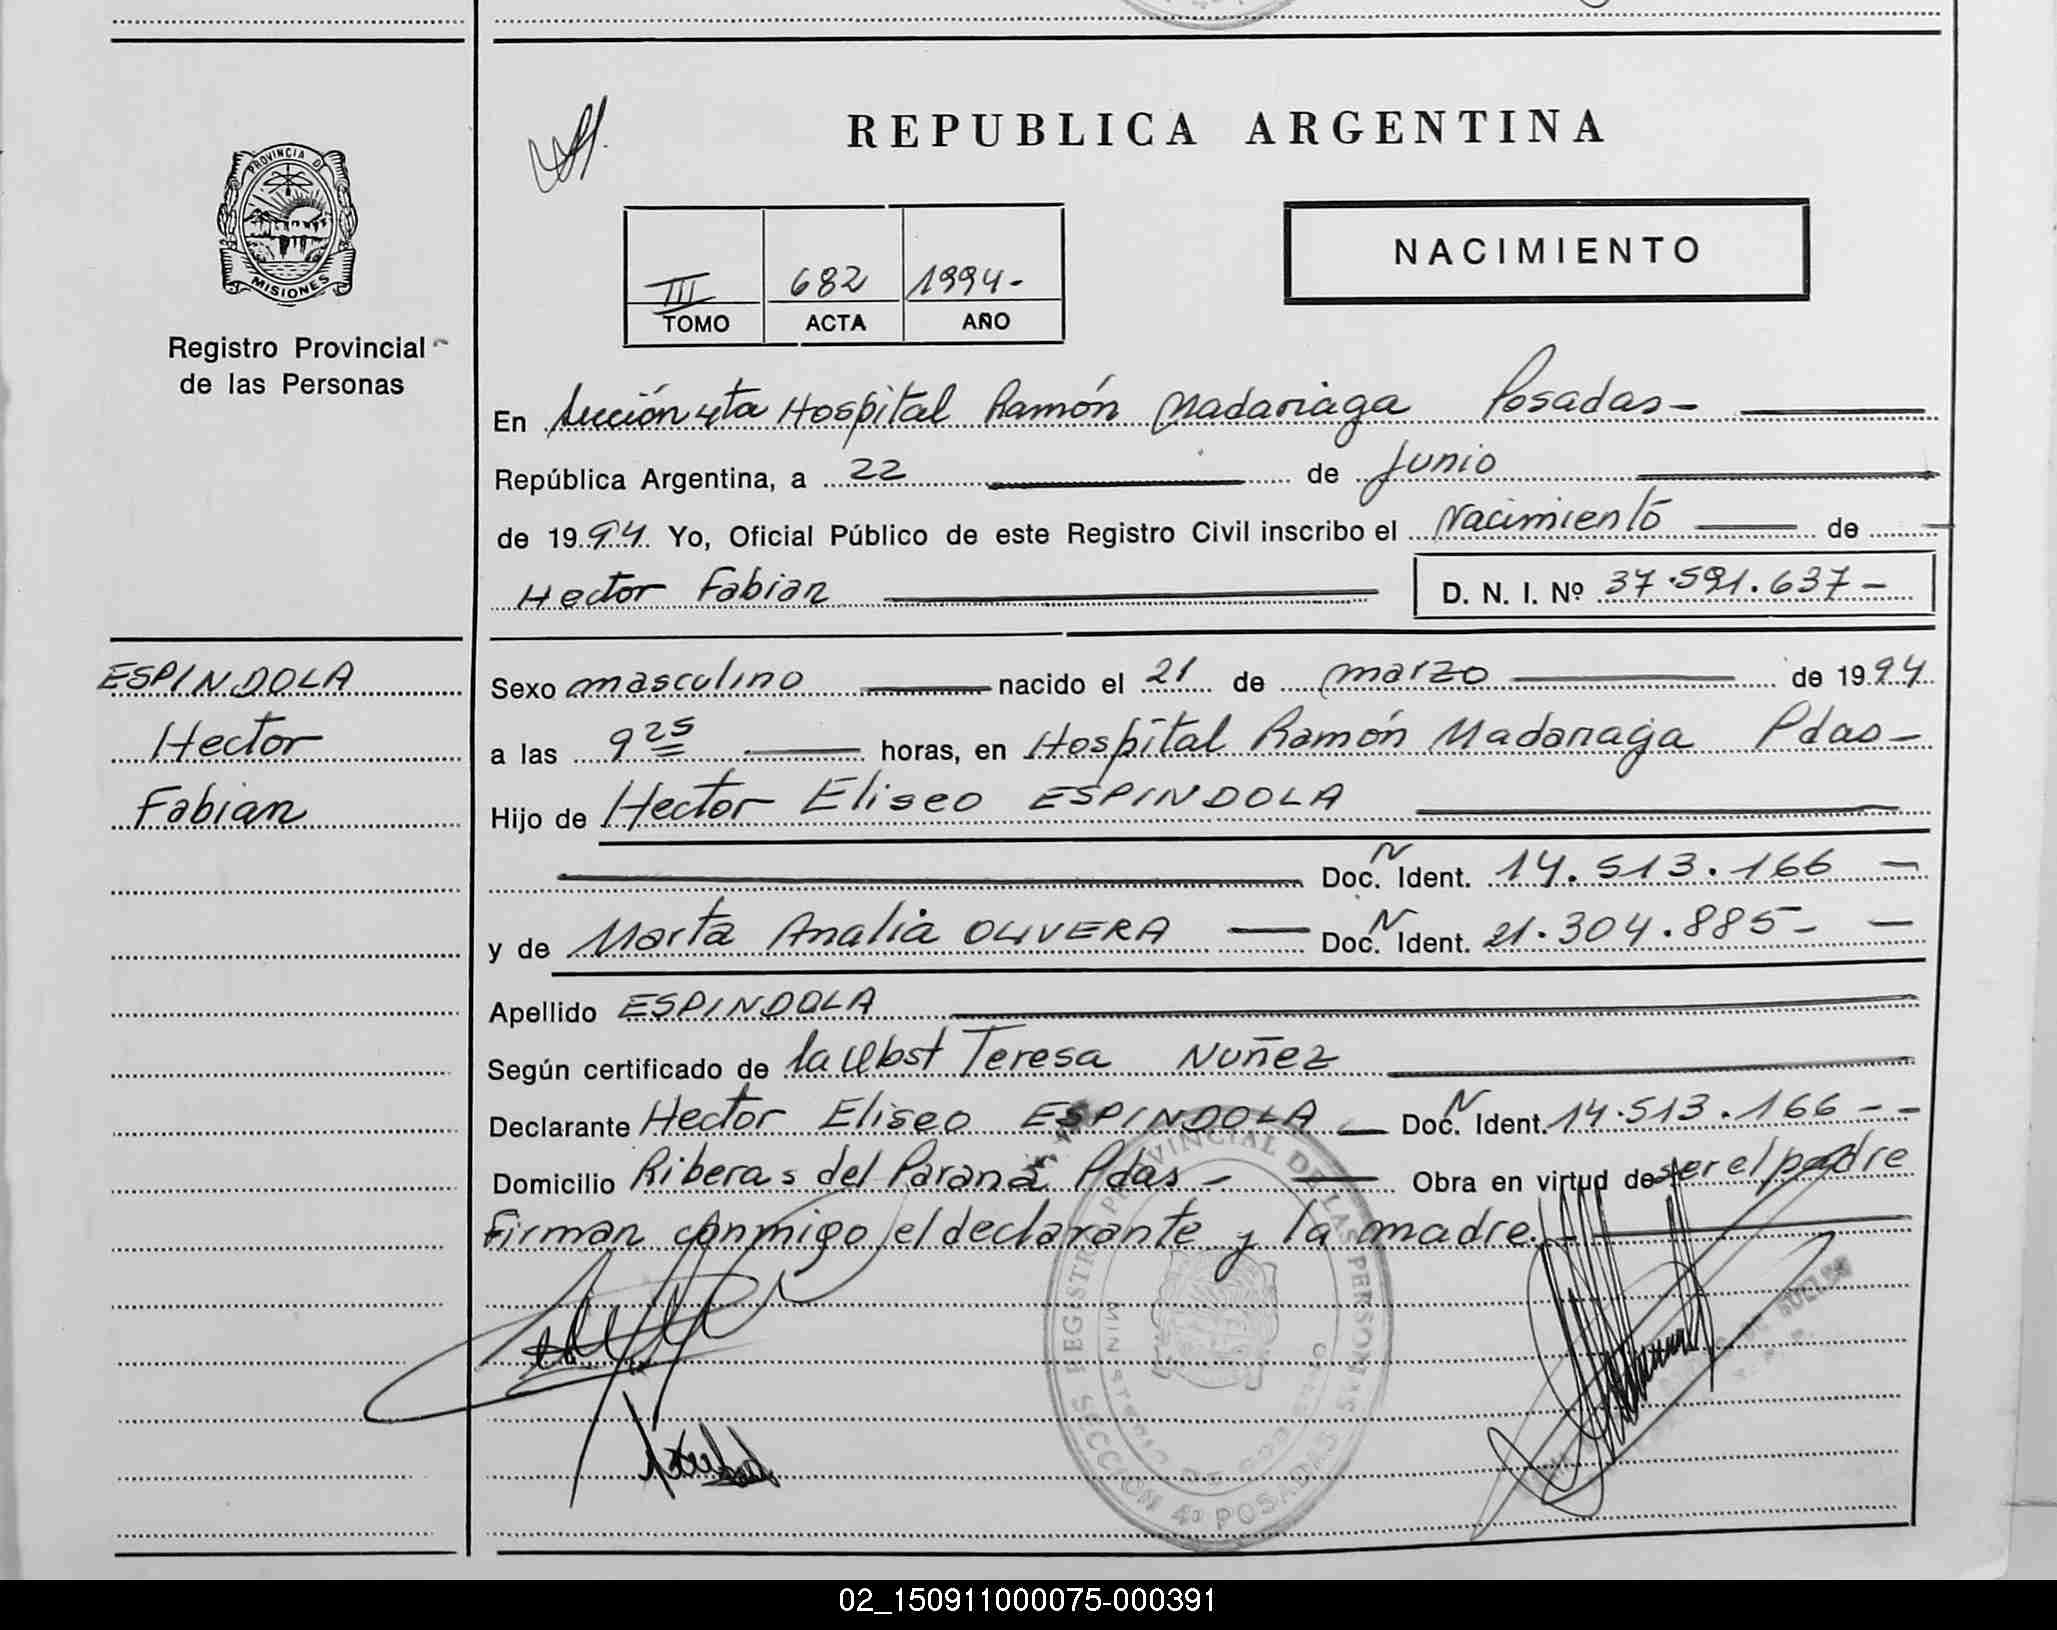 REPUBLICA ARGENTINA
PROVINCIA DE
MISIONES
Registro Provincial
de las Personas
NACIMIENTO
III 682 1994-
TOMO ACTA AÑO
En Sección 4ta Hospital Ramón Madariaga Posadas-
República Argentina, a 22 de Junio
de 1994 Yo, Oficial Público de este Registro Civil inscribo el Nacimiento de
Hector Fabian D. N. I. Nº 37.591.637-
ESPINDOLA
Hector
Fabian
Sexo masculino nacido el 21 de marzo de 1994
a las 9 25 horas, en Hospital Ramón Madariaga Pdas-
Hijo de Hector Eliseo ESPINDOLA
Doc. N Ident. 14.513.166
y de Marta Analia OLIVERA Doc. N Ident. 21.304.885-
Apellido ESPINDOLA
Según certificado de la Obst Teresa Nuñez
Declarante Hector Eliseo ESPINDOLA Doc. N Ident. 14.513.166--
Domicilio Riberas del Paraná Pdas- Obra en virtud de ser el padre
Firman conmigo el declarante y la madre.-
REGISTRO PROVINCIAL DE LAS PERSONAS
MINISTERIO DE GOBIERNO
SECCION 4ª POSADAS
02_150911000075-000391